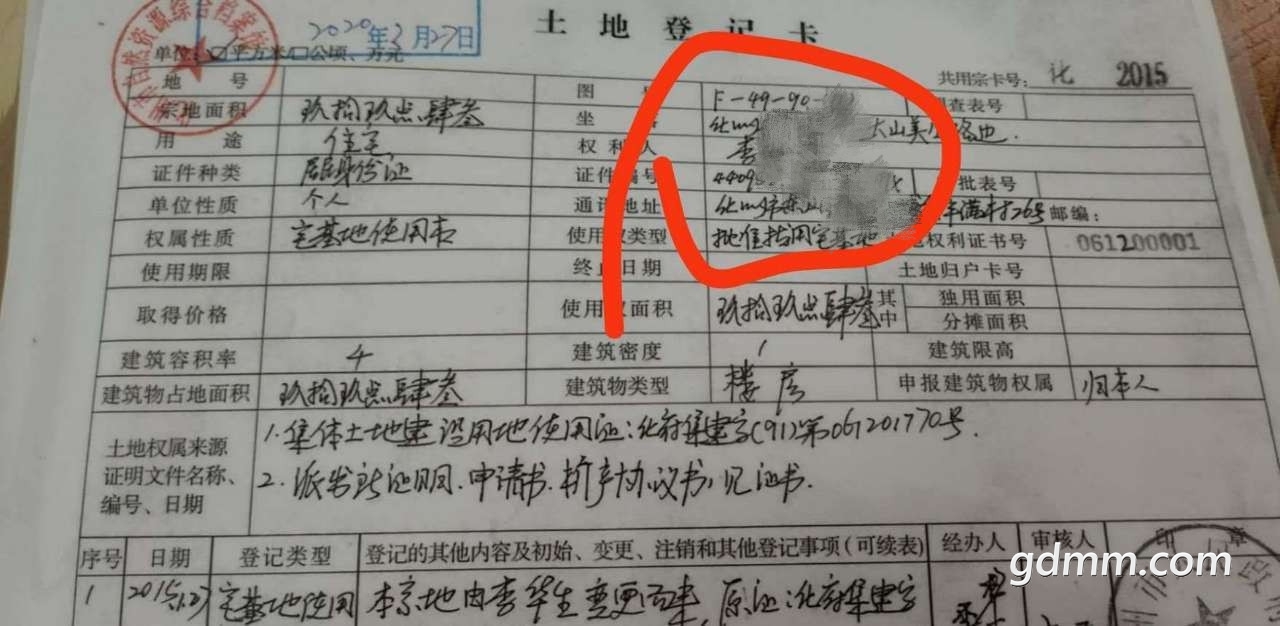 土地登记卡
2020年3月27日
自然资源综合档案
单位:☑平方米/□公顷、万元
共用宗卡号: 化 2015
地 号 图 号 F-49-90-
宗地面积 玖拾玖点肆叁 坐 化 大山 调查表号
用 途 住宅 权利人 李
证件种类 居民身份证 证件编号 4409 批表号
单位性质 个人 通讯地址 村26号 邮编:
权属性质 宅基地使用 使用权类型 批准 用宅基地 地权利证书号 061200001
使用期限 终止日期 土地归户卡号
取得价格 使用权面积 玖拾玖点肆叁 其中 独用面积
分摊面积
建筑容积率 4 建筑密度 1 建筑限高
建筑物占地面积 玖拾玖点肆叁 建筑物类型 楼房 申报建筑物权属 归本人
土地权属来源证明文件名称、编号、日期
1.集体土地建设用地使用证:化府集建字(91)第061201770号.
2. 证明.申请书. 产协议书,见证书.
序号 日期 登记类型 登记的其他内容及初始、变更、注销和其他登记事项(可续表) 经办人 审核人 印 章
1 2015 宅基地使用 本宗地由李华生变更 原证:化府集建字
gdmm.com